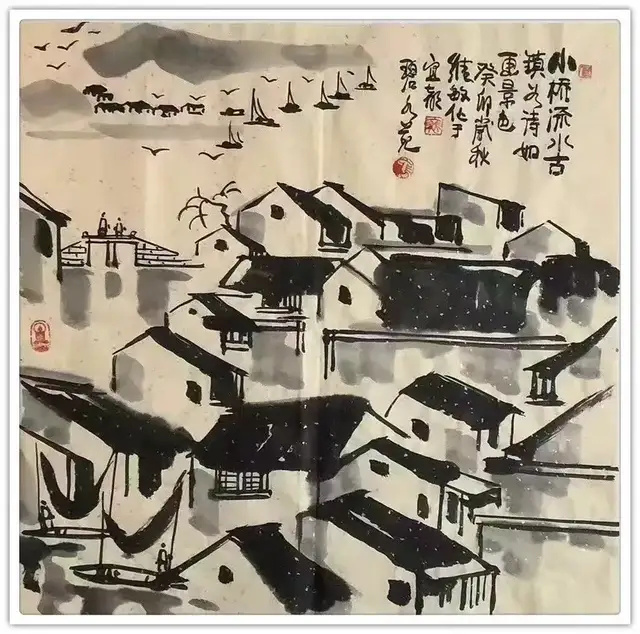 小桥流水古
镇如诗如
画景色
癸卯岁秋
维敏作于
宜
碧水苑